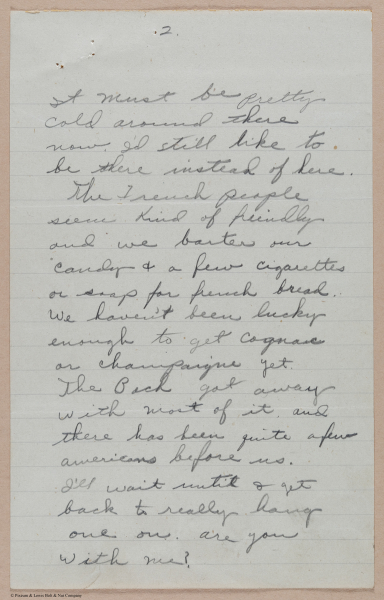 .2.
It must be pretty
cold around there
now. I'd still like to
be there instead of here.
The French people
seem kind of freindly
and we barter our
candy & a few cigarettes
or soap for french bread.
We haven't been lucky
enough to get Cognac
or champaigne yet.
The Boch got away
with most of it and
there has been quite a few
americans before us.
I'll wait until I get
back to really hang
one on. are you
with me?